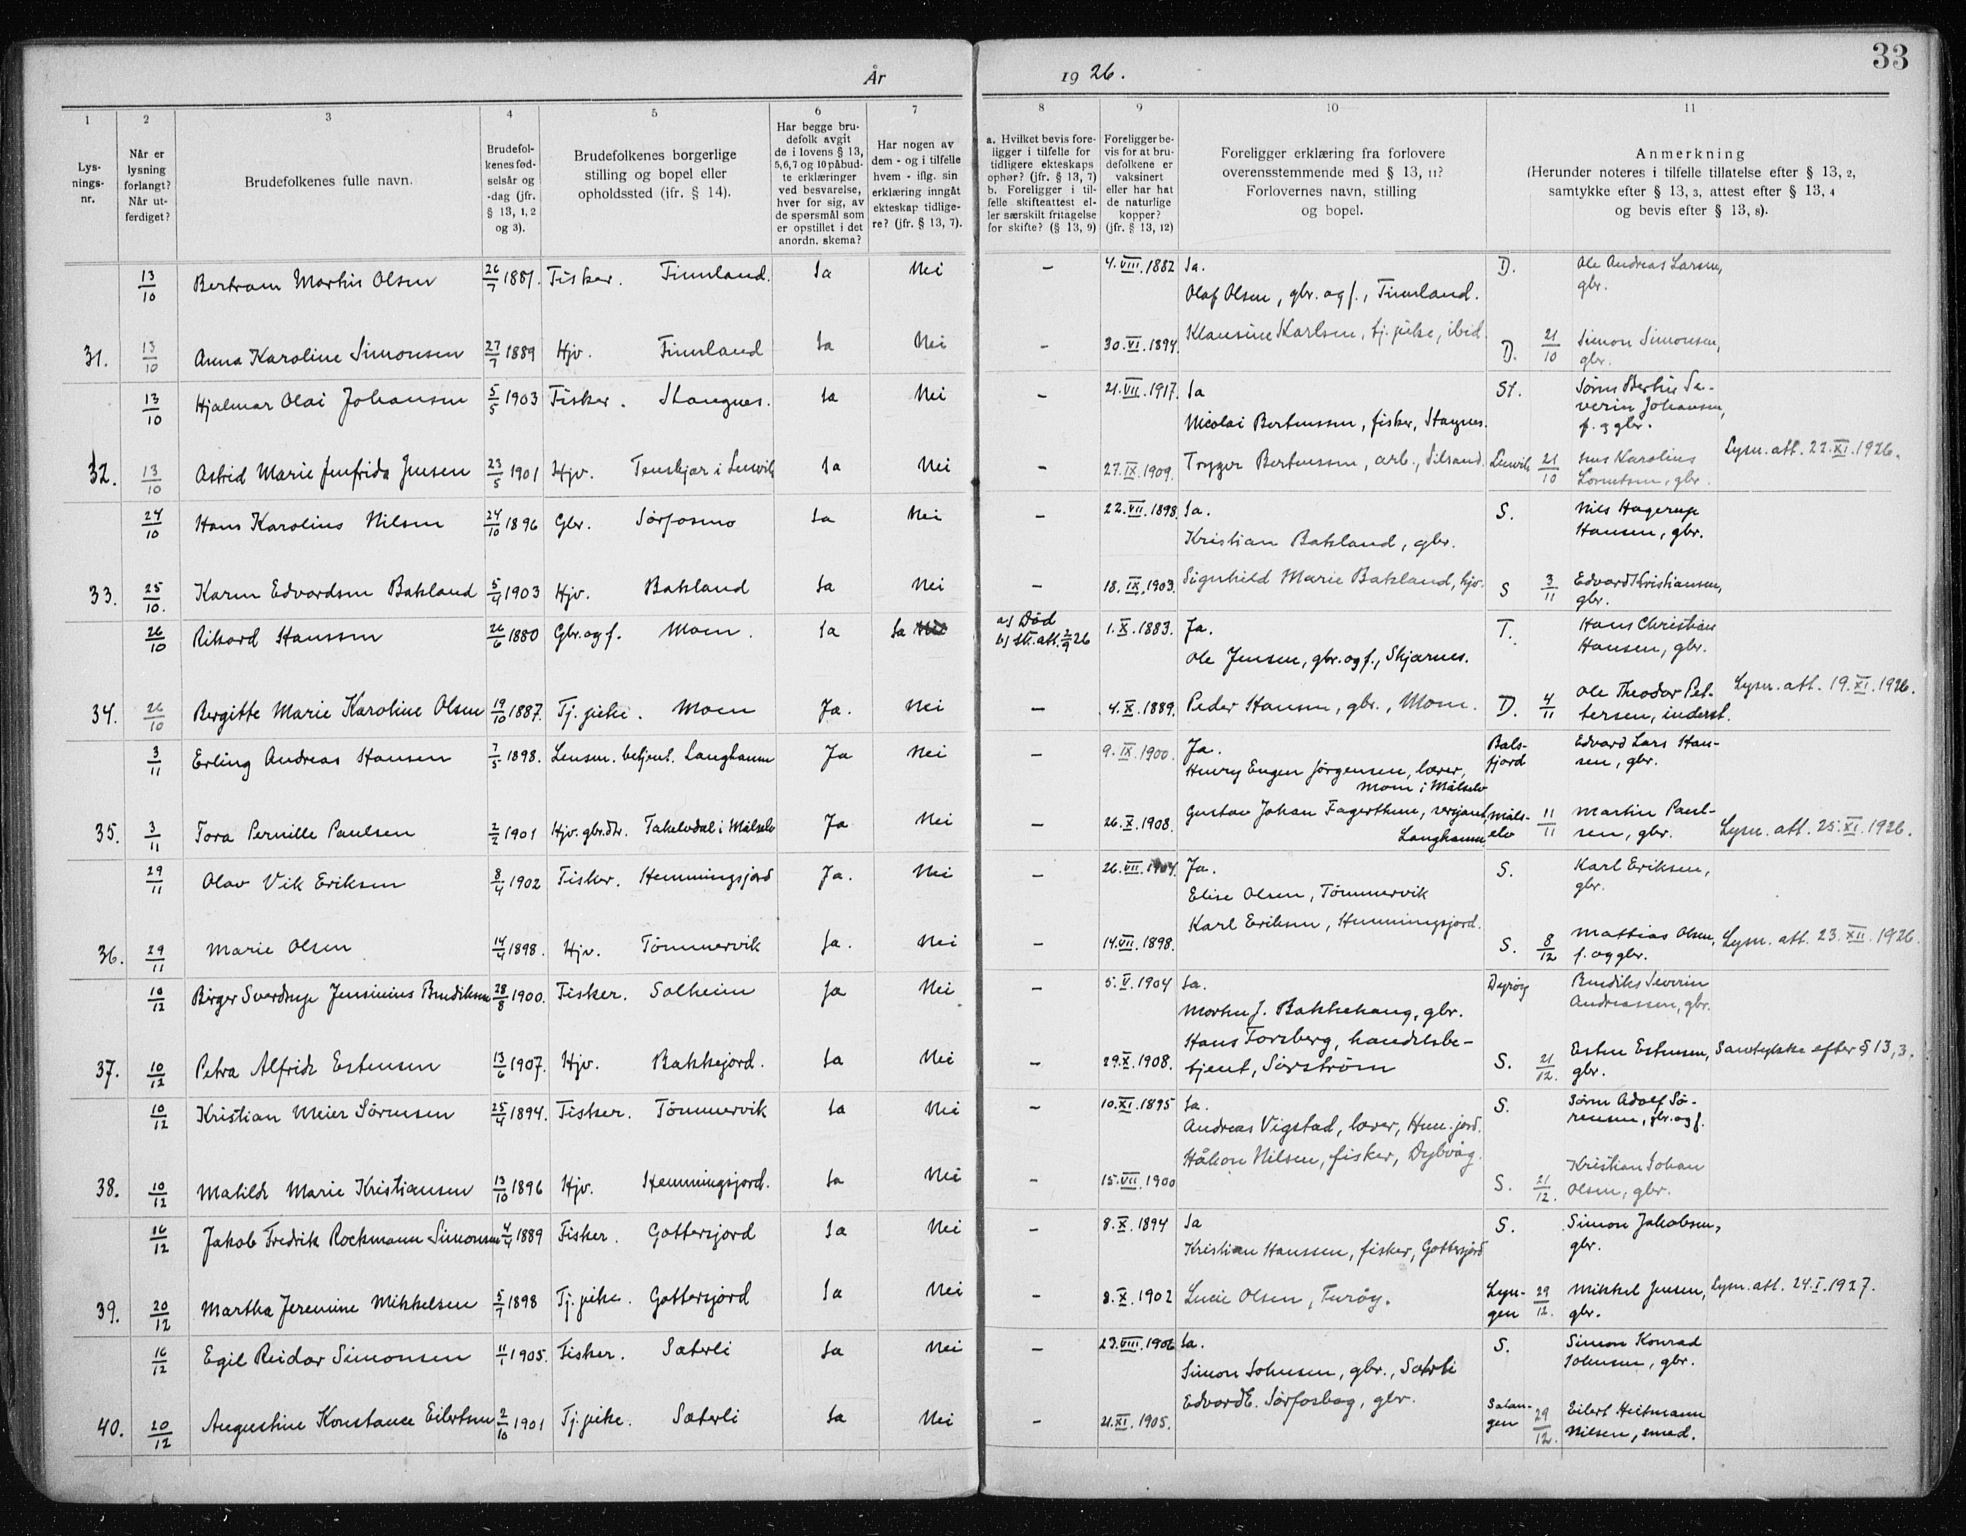 33
År 1926.
1 2 3 4 5 6 7 8 9 10 11
Lys-
nings-
nr.
Når er
lysning
forlangt?
Når ut-
ferdiget?
Brudefolkenes fulle navn.
Brudefol-
kenes fød-
selsår og
-dag (jfr.
§ 13, 1,2
og 3).
Brudefolkenes borgerlige
stilling og bopel eller
opholdssted (ifr. § 14).
Har begge bru-
defolk avgit
de i lovens § 13,
5,6,7 og 10 påbud-
te erklæringer
ved besvarelse,
hver for sig, av
de spørsmål som
er opstillet i det
anordn. skema?
Har nogen av
dem - og i tilfelle
hvem - iflg. sin
erklæring inngåt
ekteskap tidlige-
re? (jfr. § 13, 7).
a. Hvilket bevis fore-
ligger i tilfelle for
tidligere ekteskaps
ophør? (jfr. § 13, 7)
b. Foreligger i til-
felle skifteattest el-
ler særskilt fritagelse
for skifte? (§ 13, 9)
Foreligger be-
vis for at bru-
defolkene er
vaksinert
eller har hat
de naturlige
kopper?
(jfr. § 13, 12)
Foreligger erklæring fra forlovere
overensstemmende med § 13, 11?
Forlovernes navn, stilling
og bopel.
Anmerkning
(Herunder noteres i tilfelle tillatelse efter § 13, 2,
samtykke efter § 13, 3, attest efter § 13, 4
og bevis efter § 13, 8).
13/10 Bertram Martin Olsen 26/7 1881. Fisker. Finnland. Ja Nei – 4.VIII.1882 Ja. D. Ole Andreas Larsen,
Olaf Olsen, gbr. og f., Finnland. gbr.
31. 13/10 Anna Karoline Simonsen 27/7 1889 Hjv. Finnland Ja Nei – 30.VI.1894. Klausine Karlsen, tj.pike, ibid. D. 21/10 Simon Simonsen,
gbr.
13/10 Hjalmar Olai Johansen 5/5 1903 Fisker. Stangnes. Ja Nei – 21.VII.1917. Ja St. Søren Bertin Se-
verin Johansen,
Nicolai Berntsen, fisker, Stagnes. f. og gbr.
32. 13/10 Astrid Marie Jenfrida Jensen 23/5 1901 Hjv. Tenskjær i Lenvik Ja Nei – 27.IX.1909. Trygve Berntsen, arb., Silsand. Lenvik 21/10 Jens Karolius Lysn. att. 22.XI.1926.
Lorentsen, gbr.
24/10 Hans Karolius Nilsen 24/10 1896 Gbr. Sørfosmo Ja Nei – 22.VII.1898. Ja. S. Nils Hagerup
Kristian Bakland, gbr. Hansen, gbr.
33. 25/10. Karen Edvardsen Bakland 5/4 1903 Hjv. Bakland Ja Nei – 18.IX.1903. Signhild Marie Bakland, hjv. S 3/11 Edvard Kristiansen,
gbr.
26/10 Rikard Hanssen 26/6 1880 Gbr. og f. Moen. Ja Ja Nei a) Død
b) sk. att. 2/9 26 1.X.1883. Ja. T. Hans Christian
Ole Jensen, gbr. og f., Skjærnes. Hansen, gbr.
34. 26/10 Bergitte Marie Karoline Olsen 19/10 1887. Tj.pike. Moen Ja. Nei – 4.X.1889. Peder Hansen, gbr., Moen. D. 4/11 Ole Theodor Pet- Lysn. att. 19.XI.1926.
tersen, inderst.
3/11 Erling Andreas Hansen 7/5 1898. Lensm. betjent. Langhamn Ja Nei – 9.IX.1900. Ja. Bals-
fjord Edvard Lars Han-
sen, gbr.
Henry Eugen Jørgensen, lærer,
Moen i Målselv
35. 3/11 Tora Pernille Paulsen 2/2 1901 Hjv. gbr.dtr. Takelvdal i Målselv Ja Nei – 26.X.1908. Gustav Johan Fagerthun, Langhamn Måls-
elv 11/11 Martin Paul-
sen, gbr. Lysn. att. 25.XI.1926.
29/11 Olav Vik Eriksen 8/4 1902 Fisker. Hemmingsjord Ja. Nei – 26.VII.1904. Ja. S. Karl Eriksen,
gbr.
Elise Olsen, Tømmervik
36. 29/11 Marie Olsen 14/4 1898. Hjv. Tømmervik Ja. Nei – 14.VII.1898. Karl Eriksen, Hemmingsjord. S. 8/12 Mathias Olsen, Lysn. att. 23.XII.1926.
f. og gbr.
10/12 Birger Sverdrup Jensinius Bendiksen 28/8 1900. Fisker. Solheim Ja Nei – 5.V.1904 Ja. Dyrøy Bendiks Severin
Andreassen, gbr.
Morten J. Bakkehaug, gbr.
37. 10/12 Petra Alfride Estensen 13/6 1907. Hjv. Bakkejord. Ja Nei – 29.X.1908. Hans Forsberg, handelsbe-
tjent, Sørstrøm S. 21/12. Esten Estensen, Samtykke efter § 13,3.
gbr.
10/12 Kristian Meier Sørensen 25/4 1894. Fisker. Tømmervik Ja Nei – 10.XI.1895 Ja. S. Søren Adolf Sø-
rensen, gbr. og f.
Andreas Vigstad, lærer, Hem.jord.
38. 10/12 Matilde Marie Kristiansen 13/10 1896 Hjv. Hemmingsjord. Ja Nei – 15.VII.1900 Håkon Nilsen, fisker, Dybvåg. S. 21/12. Kristian Johan
Olsen, gbr.
16/12 Jakob Fredrik Rockmann Simonsen 4/4 1889 Fisker. Gottersjord Ja Nei – 8.X.1894 Ja S. Simon Jakobsen,
gbr.
Kristian Hanssen, fisker, Gottersjord
39. 20/12 Martha Jeremine Mikkelsen 5/7 1898 Tj.pike. Gottersjord Ja Nei – 8.X.1902 Lucie Olsen, Furøy. Lyn-
gen 29/12. Mikkel Jensen, Lysn. att. 24.I.1927.
gbr.
16/12 Egil Reidar Simonsen 11/1 1905. Fisker. Sæterli Ja Nei – 23.VIII.1906 Ja. S. Simon Konrad
Johnsen, gbr.
Simon Johnsen, gbr., Sæterli
40. 20/12 Augustine Konstance Eilertsen 2/10 1901 Tj.pike. Sæterli Ja Nei – 21.XI.1905. Edvard E. Sørfosbog, gbr. Salan-
gen 29/12. Eilert Heitmann
Nilsen, smed.